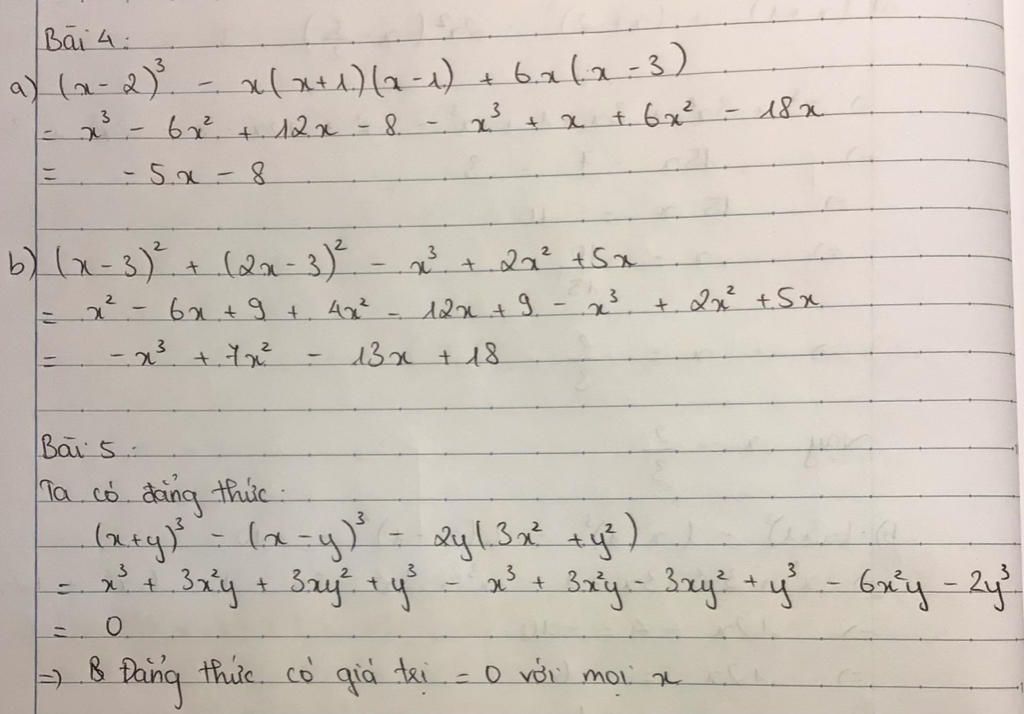 Bài 4:
a) (x-2)³ - x(x+1)(x-1) + 6x(x-3)
= x³ - 6x² + 12x - 8 - x³ + x + 6x² - 18x
= -5x - 8
b) (x-3)² + (2x-3)² - x³ + 2x² + 5x
= x² - 6x + 9 + 4x² - 12x + 9 - x³ + 2x² + 5x
= -x³ + 7x² - 13x + 18
Bài 5:
Ta có đẳng thức:
(x+y)³ - (x-y)³ - 2y(3x² + y²)
= x³ + 3x²y + 3xy² + y³ - x³ + 3x²y - 3xy² + y³ - 6x²y - 2y³
= 0
=> Đẳng thức có giá trị = 0 với mọi x